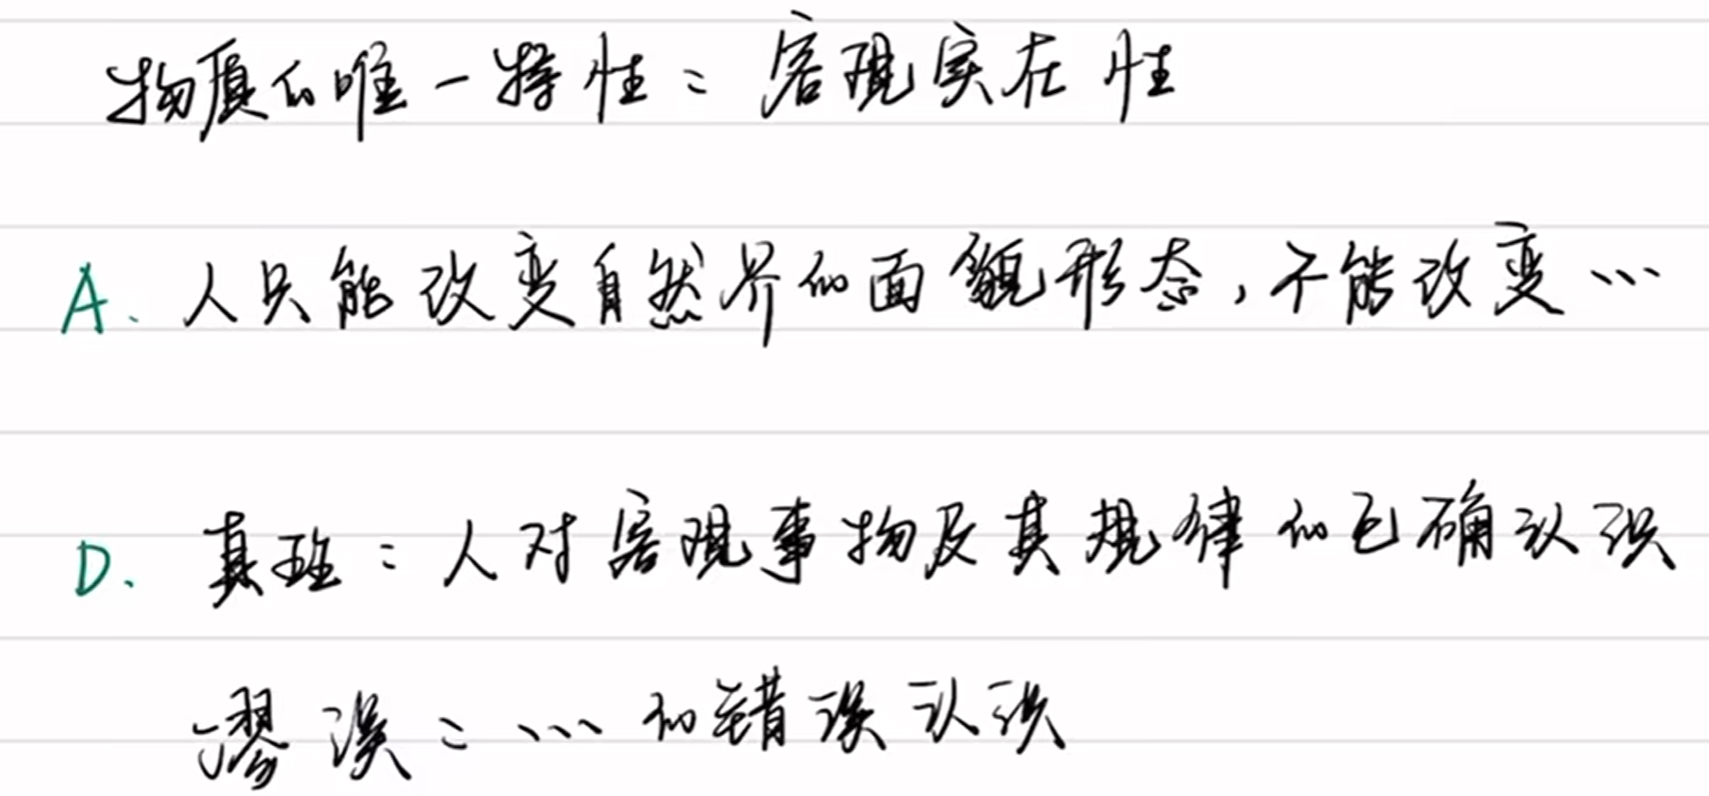 物质的唯一特性：客观实在性
A. 人只能改变自然界的面貌形态，不能改变…
D. 真理：人对客观事物及其规律的正确认识
谬误：…的错误认识